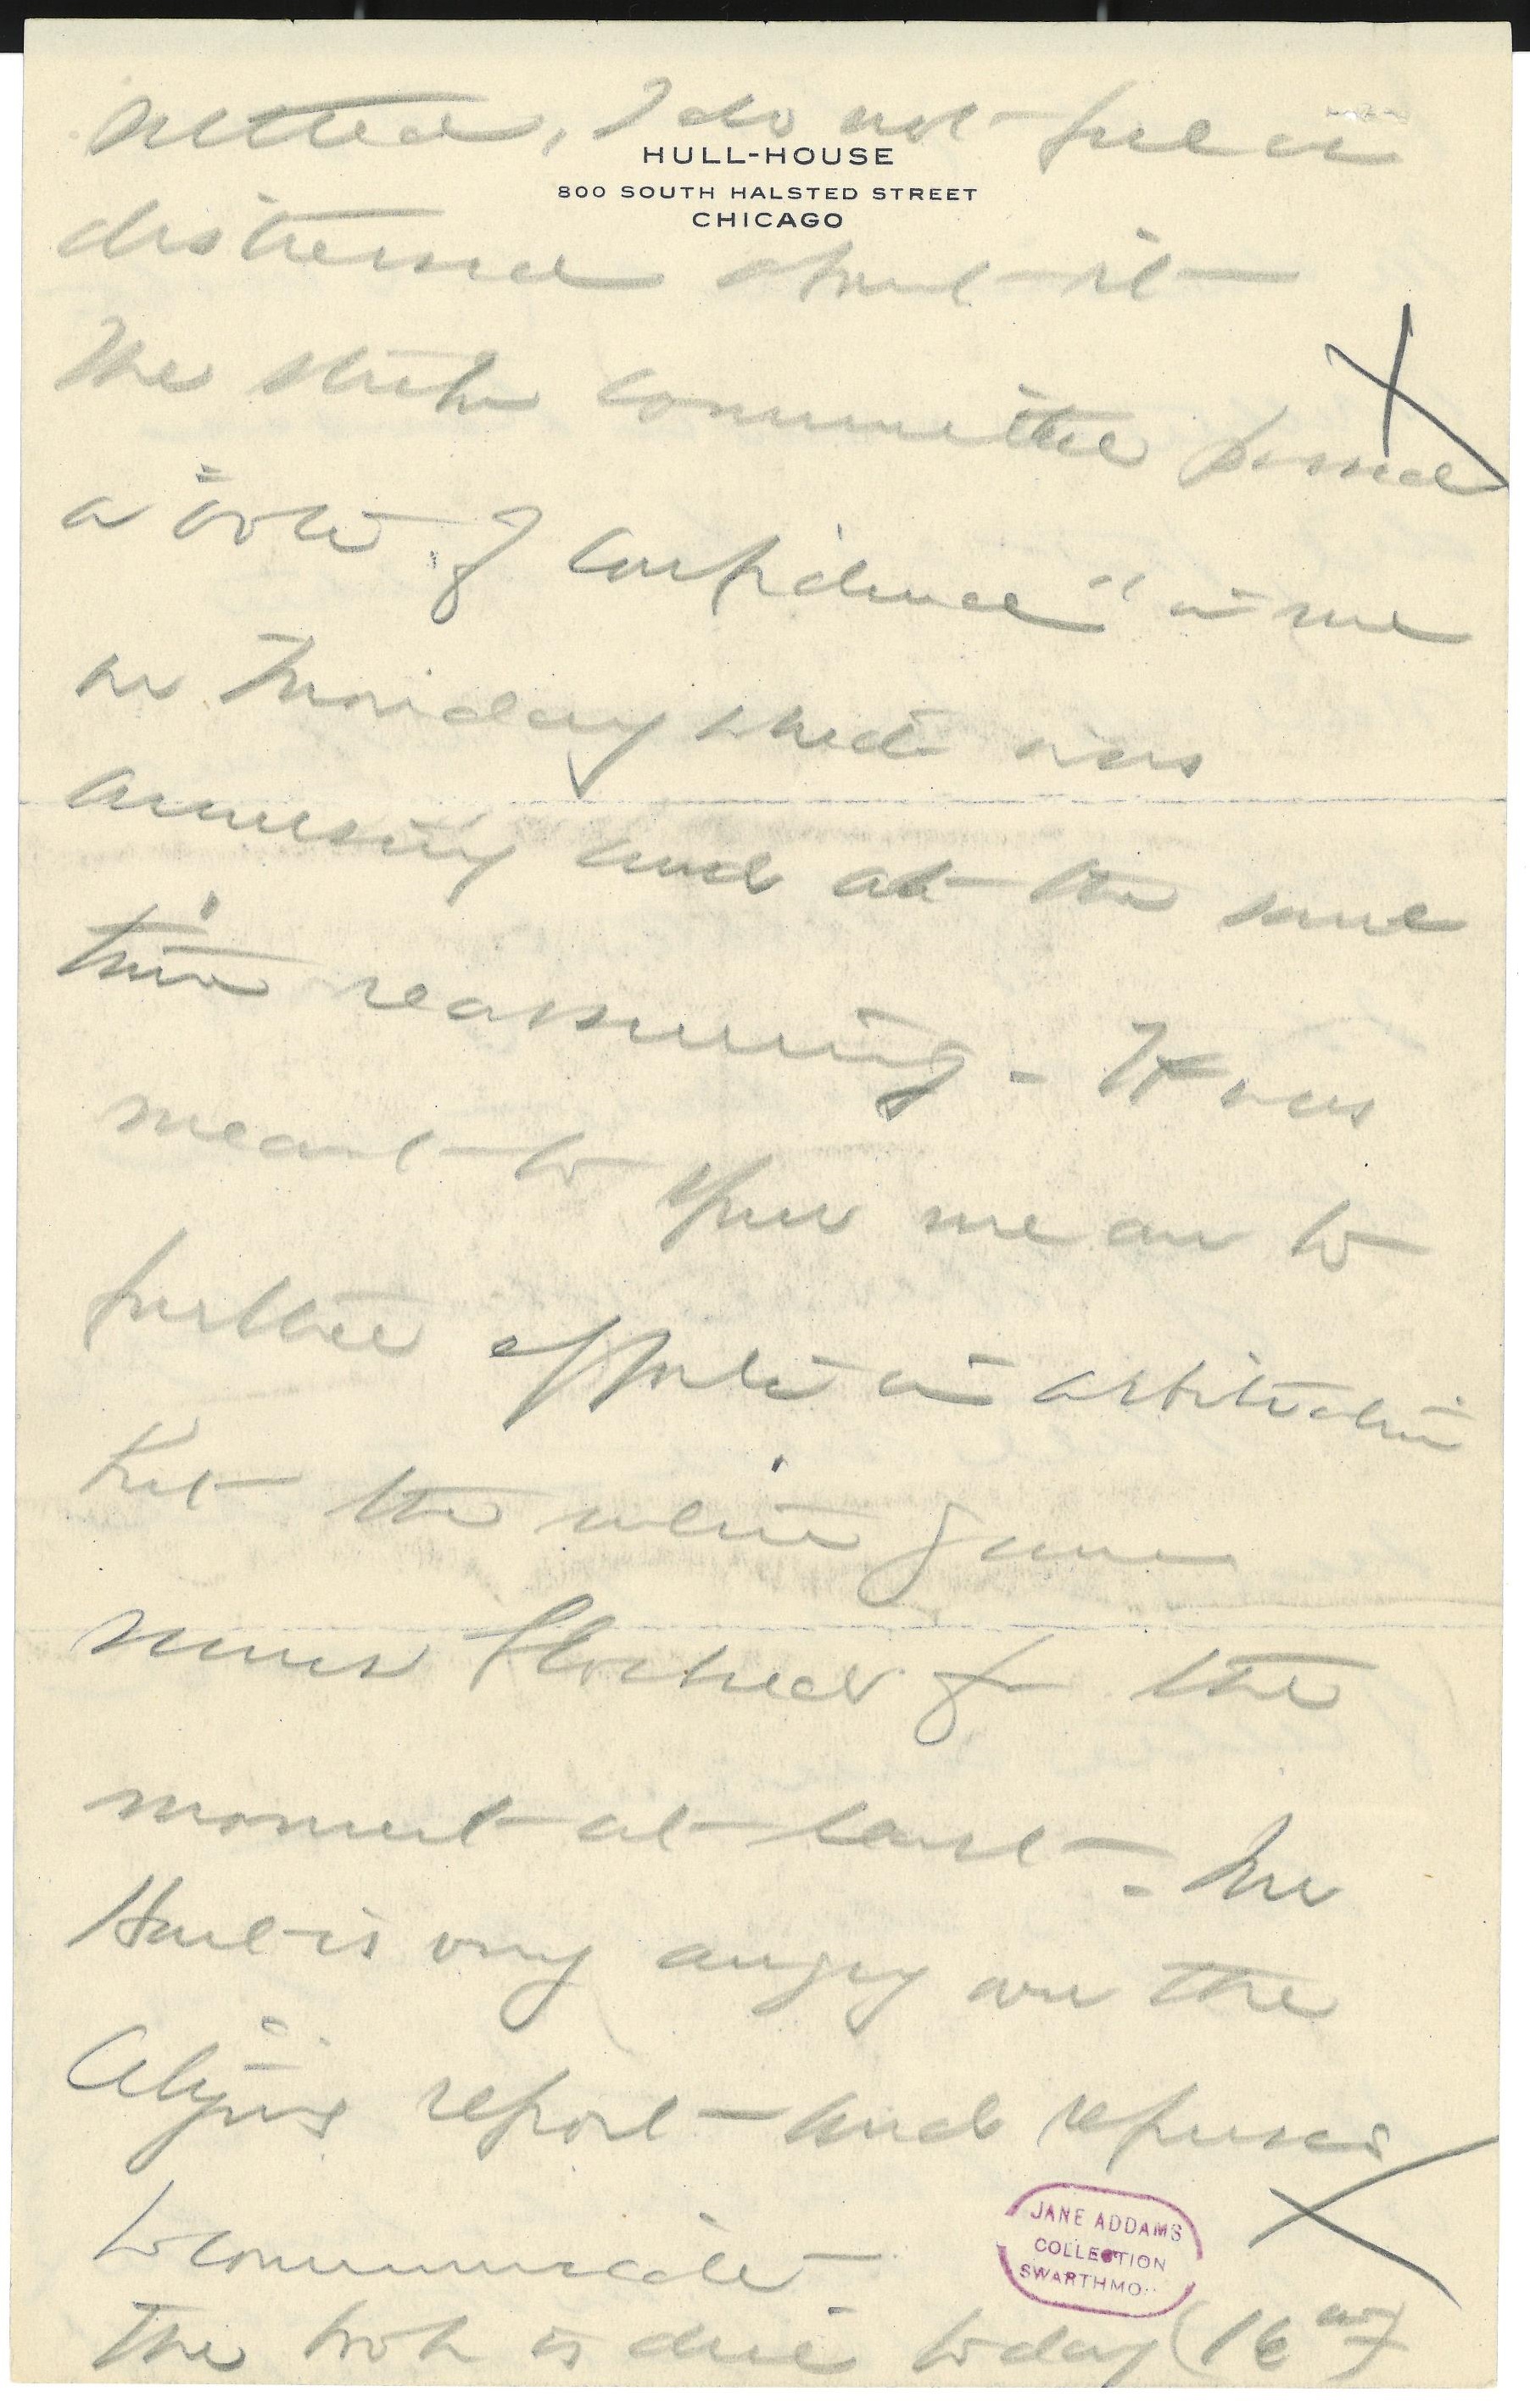 settled, I do not feel
HULL-HOUSE
800 SOUTH HALSTED STREET
CHICAGO
distressed about it
The strike committee passed
a "vote of confidence" in me
on Monday which was
amusing and at the same
time reassuring - It was
meant to spur me on to
further efforts in arbitration
but the whole
seems blocked for the
moment at least - Mr
Hart is very angry over the
report - and refuses
to communicate -
The book is due today (16
JANE ADDAMS
COLLECTION
SWARTHMO